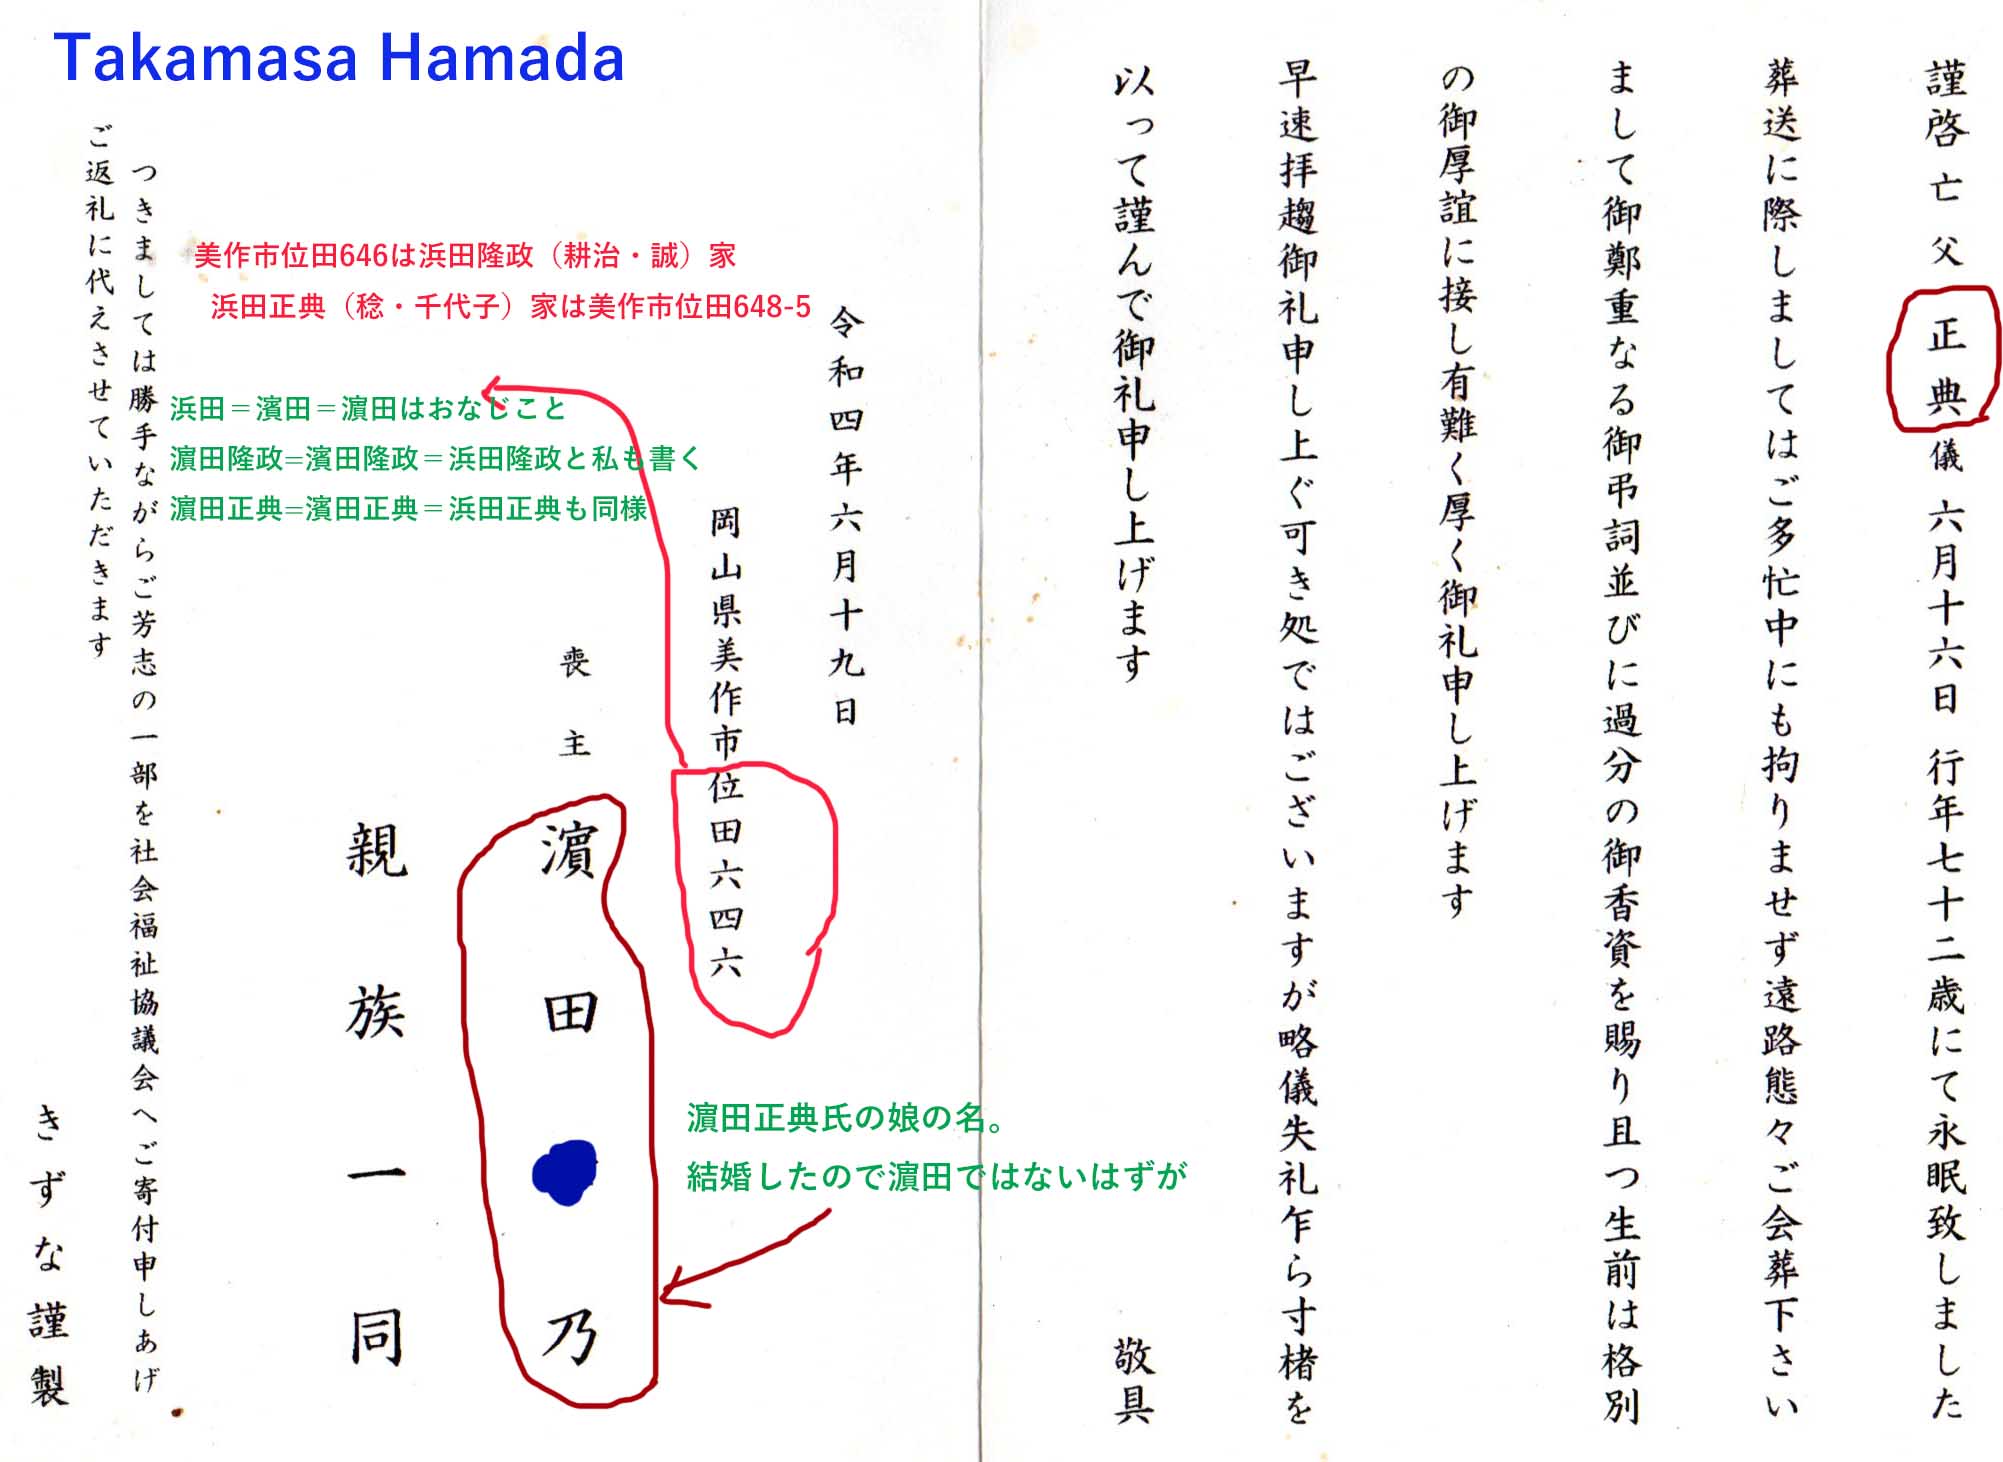 Takamasa Hamada
謹啓 亡父 正典 儀 六月十六日 行年七十二歳にて永眠致しました
葬送に際しましてはご多忙中にも拘りませず遠路態々ご会葬下さい
まして御鄭重なる御弔詞並びに過分の御香資を賜り且つ生前は格別
の御厚誼に接し有難く厚く御礼申し上げます
早速拝趨御礼申し上ぐ可き処ではございますが略儀失礼乍ら寸楮を
以って謹んで御礼申し上げます
敬具
令和四年六月十九日
岡山県美作市位田六四六
喪主
濵田
乃
親族一同
つきましては勝手ながらご芳志の一部を社会福祉協議会へご寄付申しあげ
ご返礼に代えさせていただきます
きずな謹製
美作市位田646は浜田隆政（耕治・誠）家
浜田正典（稔・千代子）家は美作市位田648-5
浜田＝濱田＝濵田はおなじこと
濵田隆政=濱田隆政＝浜田隆政と私も書く
濵田正典=濱田正典＝浜田正典も同様
濵田正典氏の娘の名。
結婚したので濵田ではないはずが